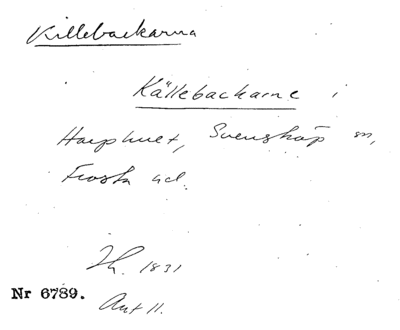 Killebackarna
Källebackarne i
Harphult, Svensköp sn,
Frosta hd.
Lh. 1831
Nr 6789.
Akt 11.